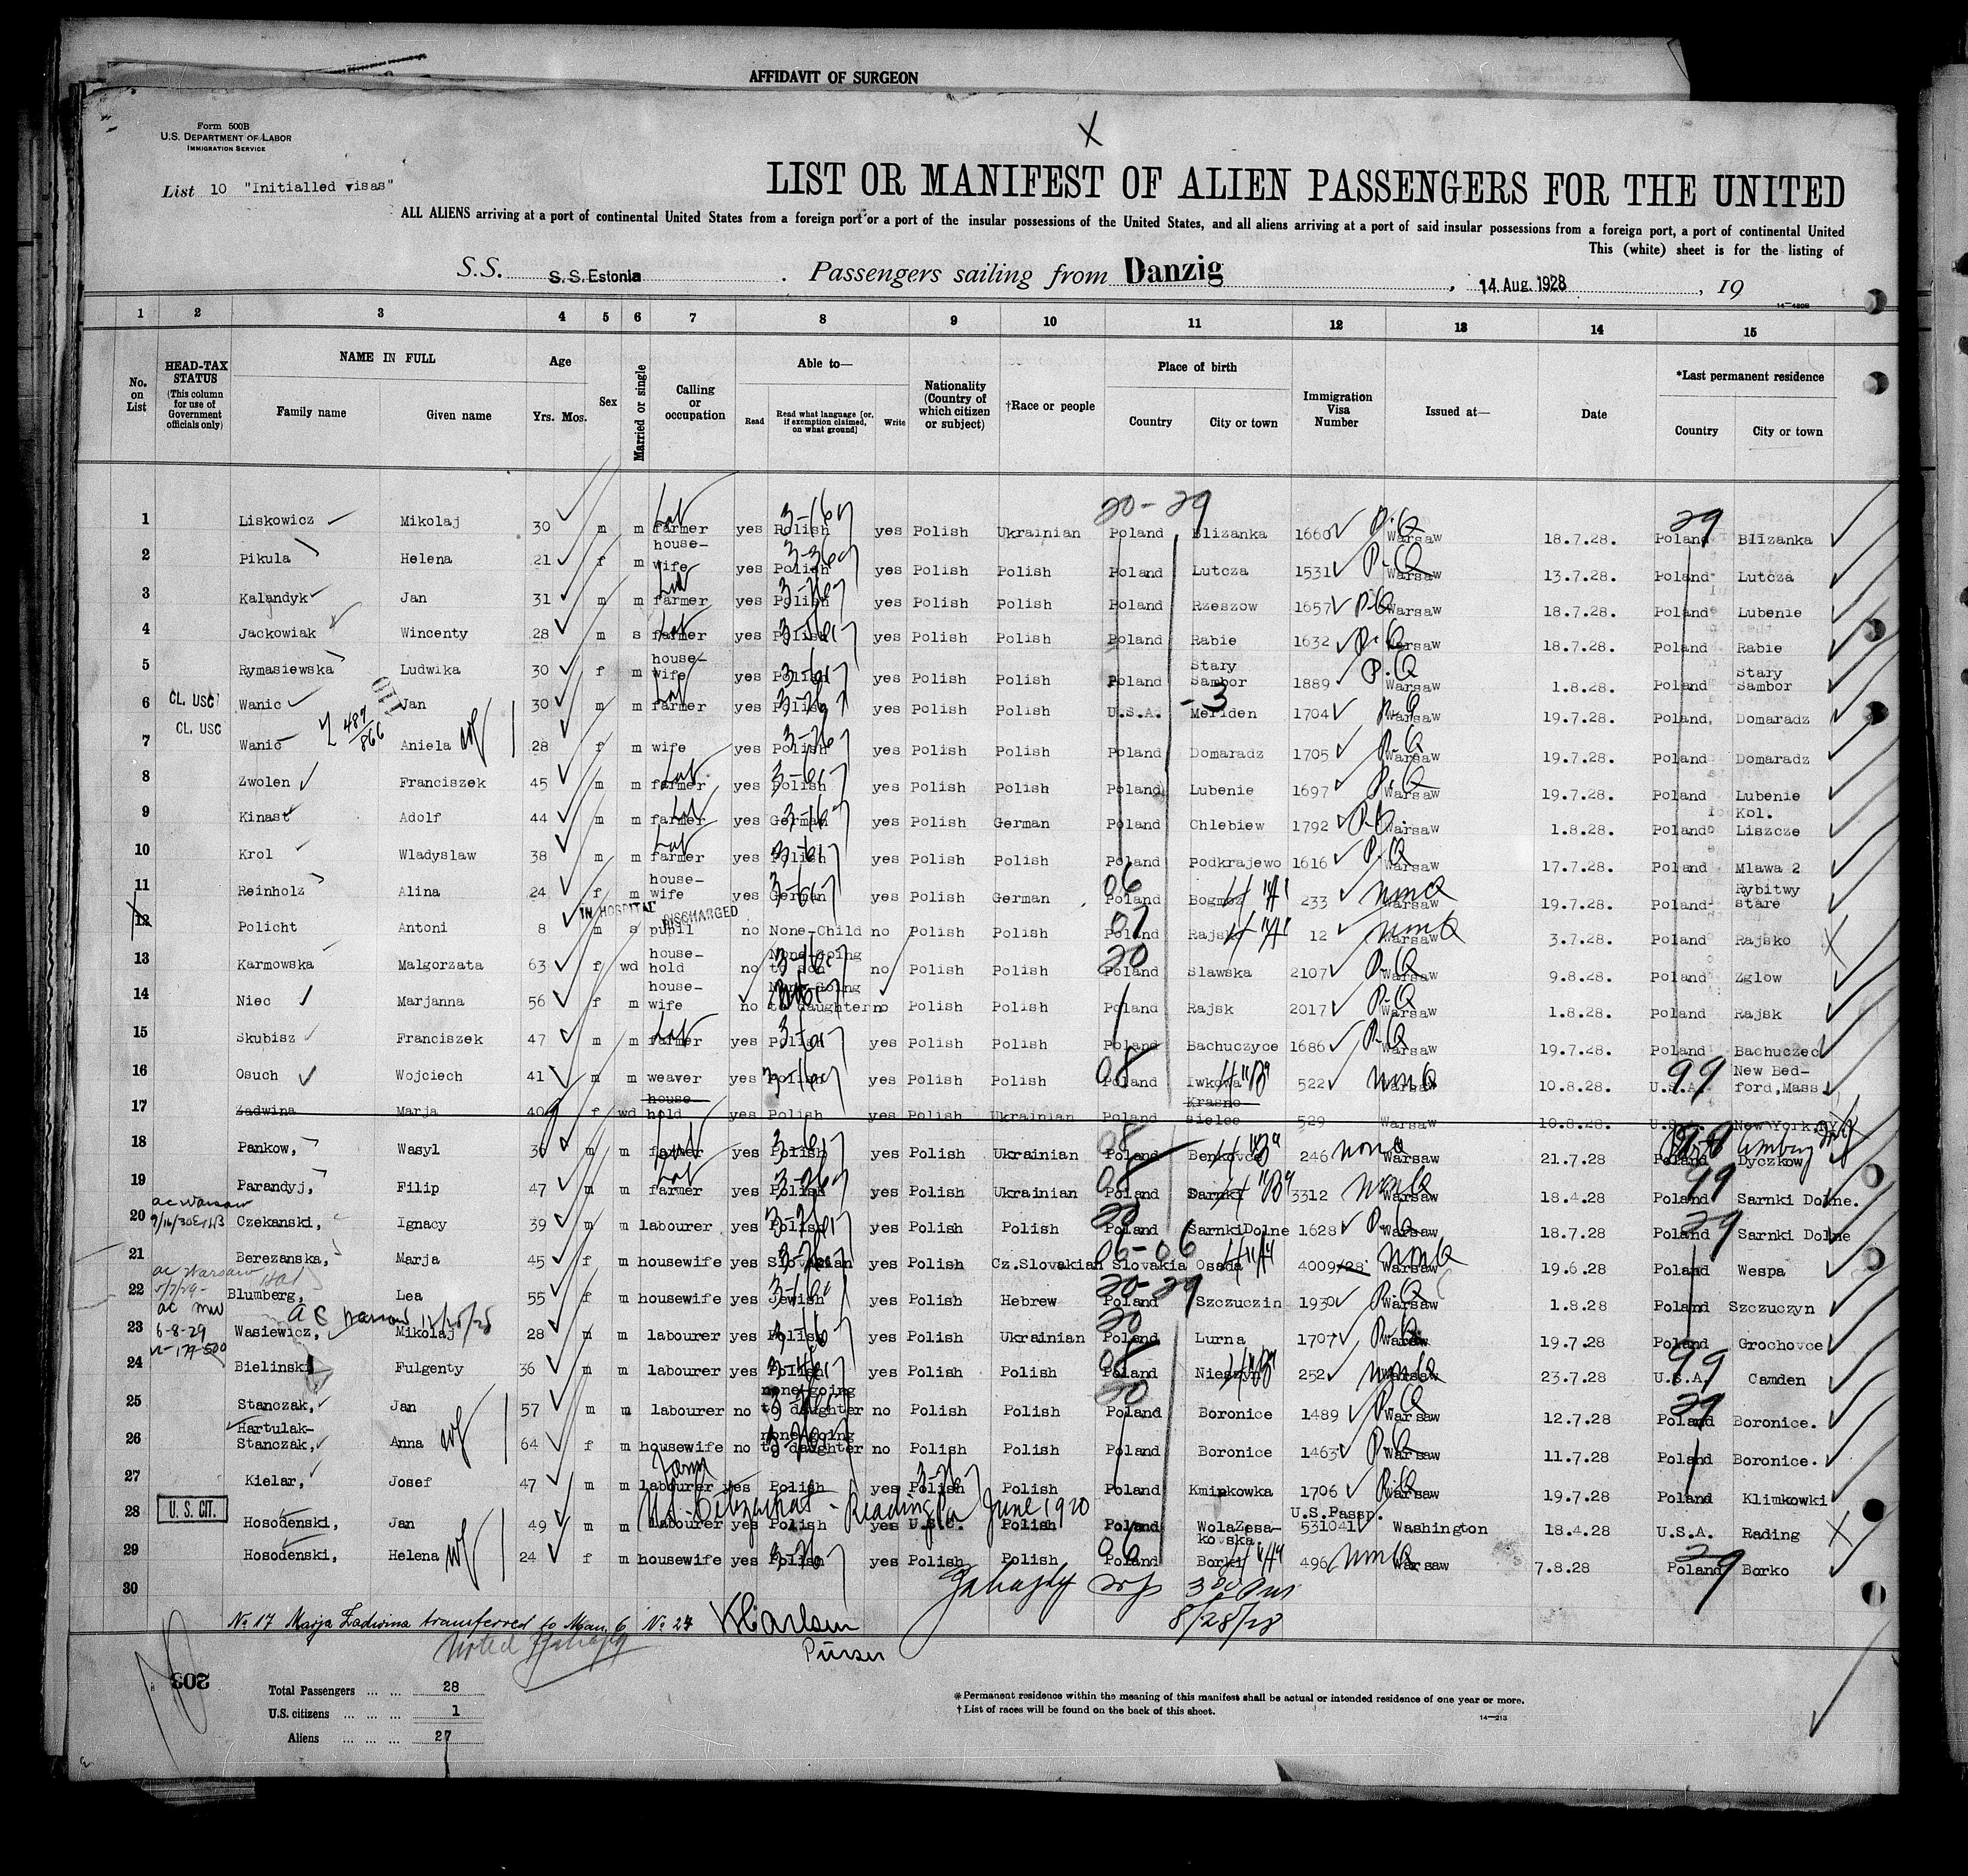 AFFIDAVIT OF SURGEON
X
Form 500B
U.S. DEPARTMENT OF LABOR
IMMIGRATION SERVICE
List 10 "Initialled visas"
LIST OR MANIFEST OF ALIEN PASSENGERS FOR THE UNITED
ALL ALIENS arriving at a port of continental United States from a foreign port or a port of the insular possessions of the United States, and all aliens arriving at a port of said insular possessions from a foreign port, a port of continental United
This (white) sheet is for the listing of
S.S. S.S. Estonia . Passengers sailing from Danzig , 14 Aug. 1928 , 19
14—430B
1 2 3 4 5 6 7 8 9 10 11 12 13 14 15
No. on List
HEAD-TAX STATUS (This column for use of Government officials only)
NAME IN FULL Family name Given name
Age Yrs. Mos.
Sex
Married or single
Calling or occupation
Able to— Read Read what language [or, if exemption claimed, on what ground] Write
Nationality (Country of which citizen or subject)
†Race or people
Place of birth Country City or town
Immigration Visa Number
Issued at—
Date
*Last permanent residence Country City or town
20-29 29
1 Liskowicz Mikolaj 30 m m farmer yes Polish yes Polish Ukrainian Poland Blizanka 1660 P.Q Warsaw 18.7.28. Poland Blizanka
2 Pikula Helena 21 f m house-wife yes Polish yes Polish Polish Poland Lutcza 1531 P.Q Warsaw 13.7.28. Poland Lutcza
3 Kalandyk Jan 31 m m farmer yes Polish yes Polish Polish Poland Rzeszow 1657 P.Q Warsaw 18.7.28. Poland Lubenie
4 Jackowiak Wincenty 28 m s farmer yes Polish yes Polish Polish Poland Rabie 1632 P.Q Warsaw 18.7.28. Poland Rabie
5 Rymasiewska Ludwika 30 f m house-wife yes Polish yes Polish Polish Poland Stary Sambor 1889 P.Q Warsaw 1.8.28. Poland Stary Sambor
6 CL. USC Wanic Jan 30 m m farmer yes Polish yes Polish Polish U.S.A. -3 Meriden 1704 P.Q Warsaw 19.7.28. Poland Domaradz
7 CL. USC Wanic Aniela wf 28 f m wife yes Polish yes Polish Polish Poland Domaradz 1705 P.Q Warsaw 19.7.28. Poland Domaradz
8 Zwolen Franciszek 45 m m farmer yes Polish yes Polish Polish Poland Lubenie 1697 P.Q Warsaw 19.7.28. Poland Lubenie
9 Kinast Adolf 44 m m farmer yes German yes Polish German Poland Chlebiew 1792 P.Q Warsaw 1.8.28. Poland Kol. Liszcze
10 Krol Wladyslaw 38 m m farmer yes Polish yes Polish Polish Poland Podkrajewo 1616 P.Q Warsaw 17.7.28. Poland Mlawa 2
11 Reinholz Alina 24 f m house-wife yes German yes Polish German 06 Poland 233 Warsaw 19.7.28. Poland Rybitwy stare
IN HOSPITAL DISCHARGED
12 Policht Antoni 8 m s pupil no None-Child no Polish Polish 07 Poland 12 Warsaw 3.7.28. Poland Rajsko
13 Karmowska Malgorzata 63 f wd house-hold no None-going to son no Polish Polish 20 Poland Slawska 2107 P.Q Warsaw 9.8.28. Poland Zglow
14 Niec Marjanna 56 f m house-wife no None-going to daughter no Polish Polish Poland Rajsk 2017 P.Q Warsaw 1.8.28. Poland Rajsk
15 Skubisz Franciszek 47 m m farmer yes Polish yes Polish Polish Poland Bachuczyce 1686 P.Q Warsaw 19.7.28. Poland Bachuczec
16 Osuch Wojciech 41 m m weaver yes Polish yes Polish Polish 08 Poland Iwkowa 522 Warsaw 10.8.28. 99 U.S.A. New Bed-ford, Mass.
17 Zadwina Marja 40 f wd house-hold yes Polish yes Polish Ukrainian Poland Krasno-Sielce 529 Warsaw 10.8.28. U.S. New York, NY
18 Pankow, Wasyl 36 m m farmer yes Polish yes Polish Ukrainian 08 Poland Benkovce 246 Warsaw 21.7.28 Poland Dyczkow
19 Parandyj, Filip 47 m m farmer yes Polish yes Polish Ukrainian 08 Poland Sarnki 3312 Warsaw 18.4.28 99 Poland Sarnki Dolne.
ac Warsaw
20 Czekanski, Ignacy 39 m m labourer yes Polish yes Polish Polish 20 Poland SarnkiDolne 1628 P.Q Warsaw 18.7.28 29 Poland Sarnki Dolne
21 Berezanska, Marja 45 f m housewife yes Slovakian yes Polish Cz.Slovakian 06-06 Slovakia Osada 4009/28 Warsaw 19.6.28 Poland Wespa
ac Warsaw
22 Blumberg, Lea 55 f m housewife yes Jewish yes Polish Hebrew 20-29 Poland Szczuczin 1930 P.Q Warsaw 1.8.28 Poland Szczuczyn
6-8-29
23 Wasiewicz, Mikolaj 28 m m labourer yes Polish yes Polish Ukrainian 20 Poland Lurna 1707 P.Q Warsaw 19.7.28 Poland Grochovce
24 Bielinski Fulgenty 36 m m labourer yes Polish yes Polish Polish 08 Poland 252 Warsaw 23.7.28 99 U.S.A. Camden
25 Stanczak, Jan 57 m m labourer no none-going to daughter no Polish Polish 20 Poland Boronice 1489 P.Q Warsaw 12.7.28 29 Poland Boronice.
26 Hartulak-Stanczak, Anna wf 64 f m housewife no none-going to daughter no Polish Polish Poland Boronice 1463 P.Q Warsaw 11.7.28 Poland Boronice.
27 Kielar, Josef 47 m m labourer yes Polish yes Polish Polish Poland Kmipkowka 1706 P.Q Warsaw 19.7.28 Poland Klimkowki
Reading Pa June 1920
28 U. S. CIT. Hosodenski, Jan 49 m m labourer yes Polish yes U.S.C. Polish Poland WolaZesa-kowska U.S.Passp. 531041 Washington 18.4.28 U.S.A. Rading
29 Hosodenski, Helena wf 24 f m housewife yes Polish yes Polish Polish 06 Poland Borki 496 Warsaw 7.8.28 29 Poland Borko
30
8/28/28
No 17 Marja Zadwina transferred to Man. 6 No 24 Karlsen
Purser
Noted
203
Total Passengers ... ... 28
U.S. citizens ... ... ... 1
Aliens ... ... ... 27
*Permanent residence within the meaning of this manifest shall be actual or intended residence of one year or more.
†List of races will be found on the back of this sheet.
14—213